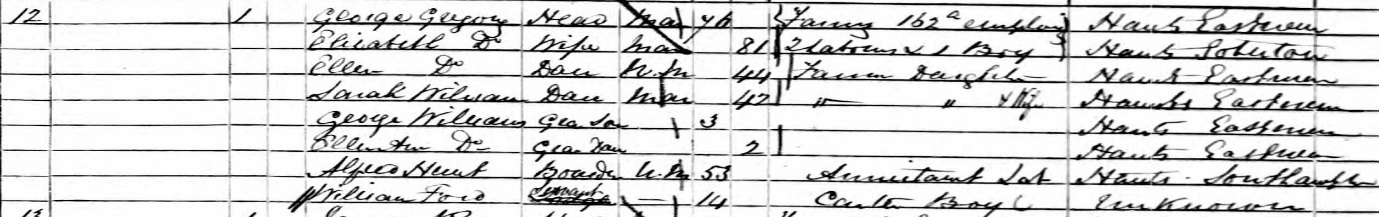 12 1 George Gregory Head Mar 76 Farmer 162 a employing Hants Eastmeon
Elizabeth Do Wife Mar 81 2 labourers & 1 Boy Hants Soberton
Ellen Do Dau U.M 44 Farmer Daughter Hants Eastmeon
Sarah Williams Dau Mar 42 " " & Wife Hants Eastmeon
George Williams Gran Son 3 Hants Eastmeon
Do Gran Dau 2 Hants Eastmeon
Alfred Hunt Boarder U.M 53 Annuitant Hants Southampton
William Ford Servant — 14 Carter Boy Unknown
13 1